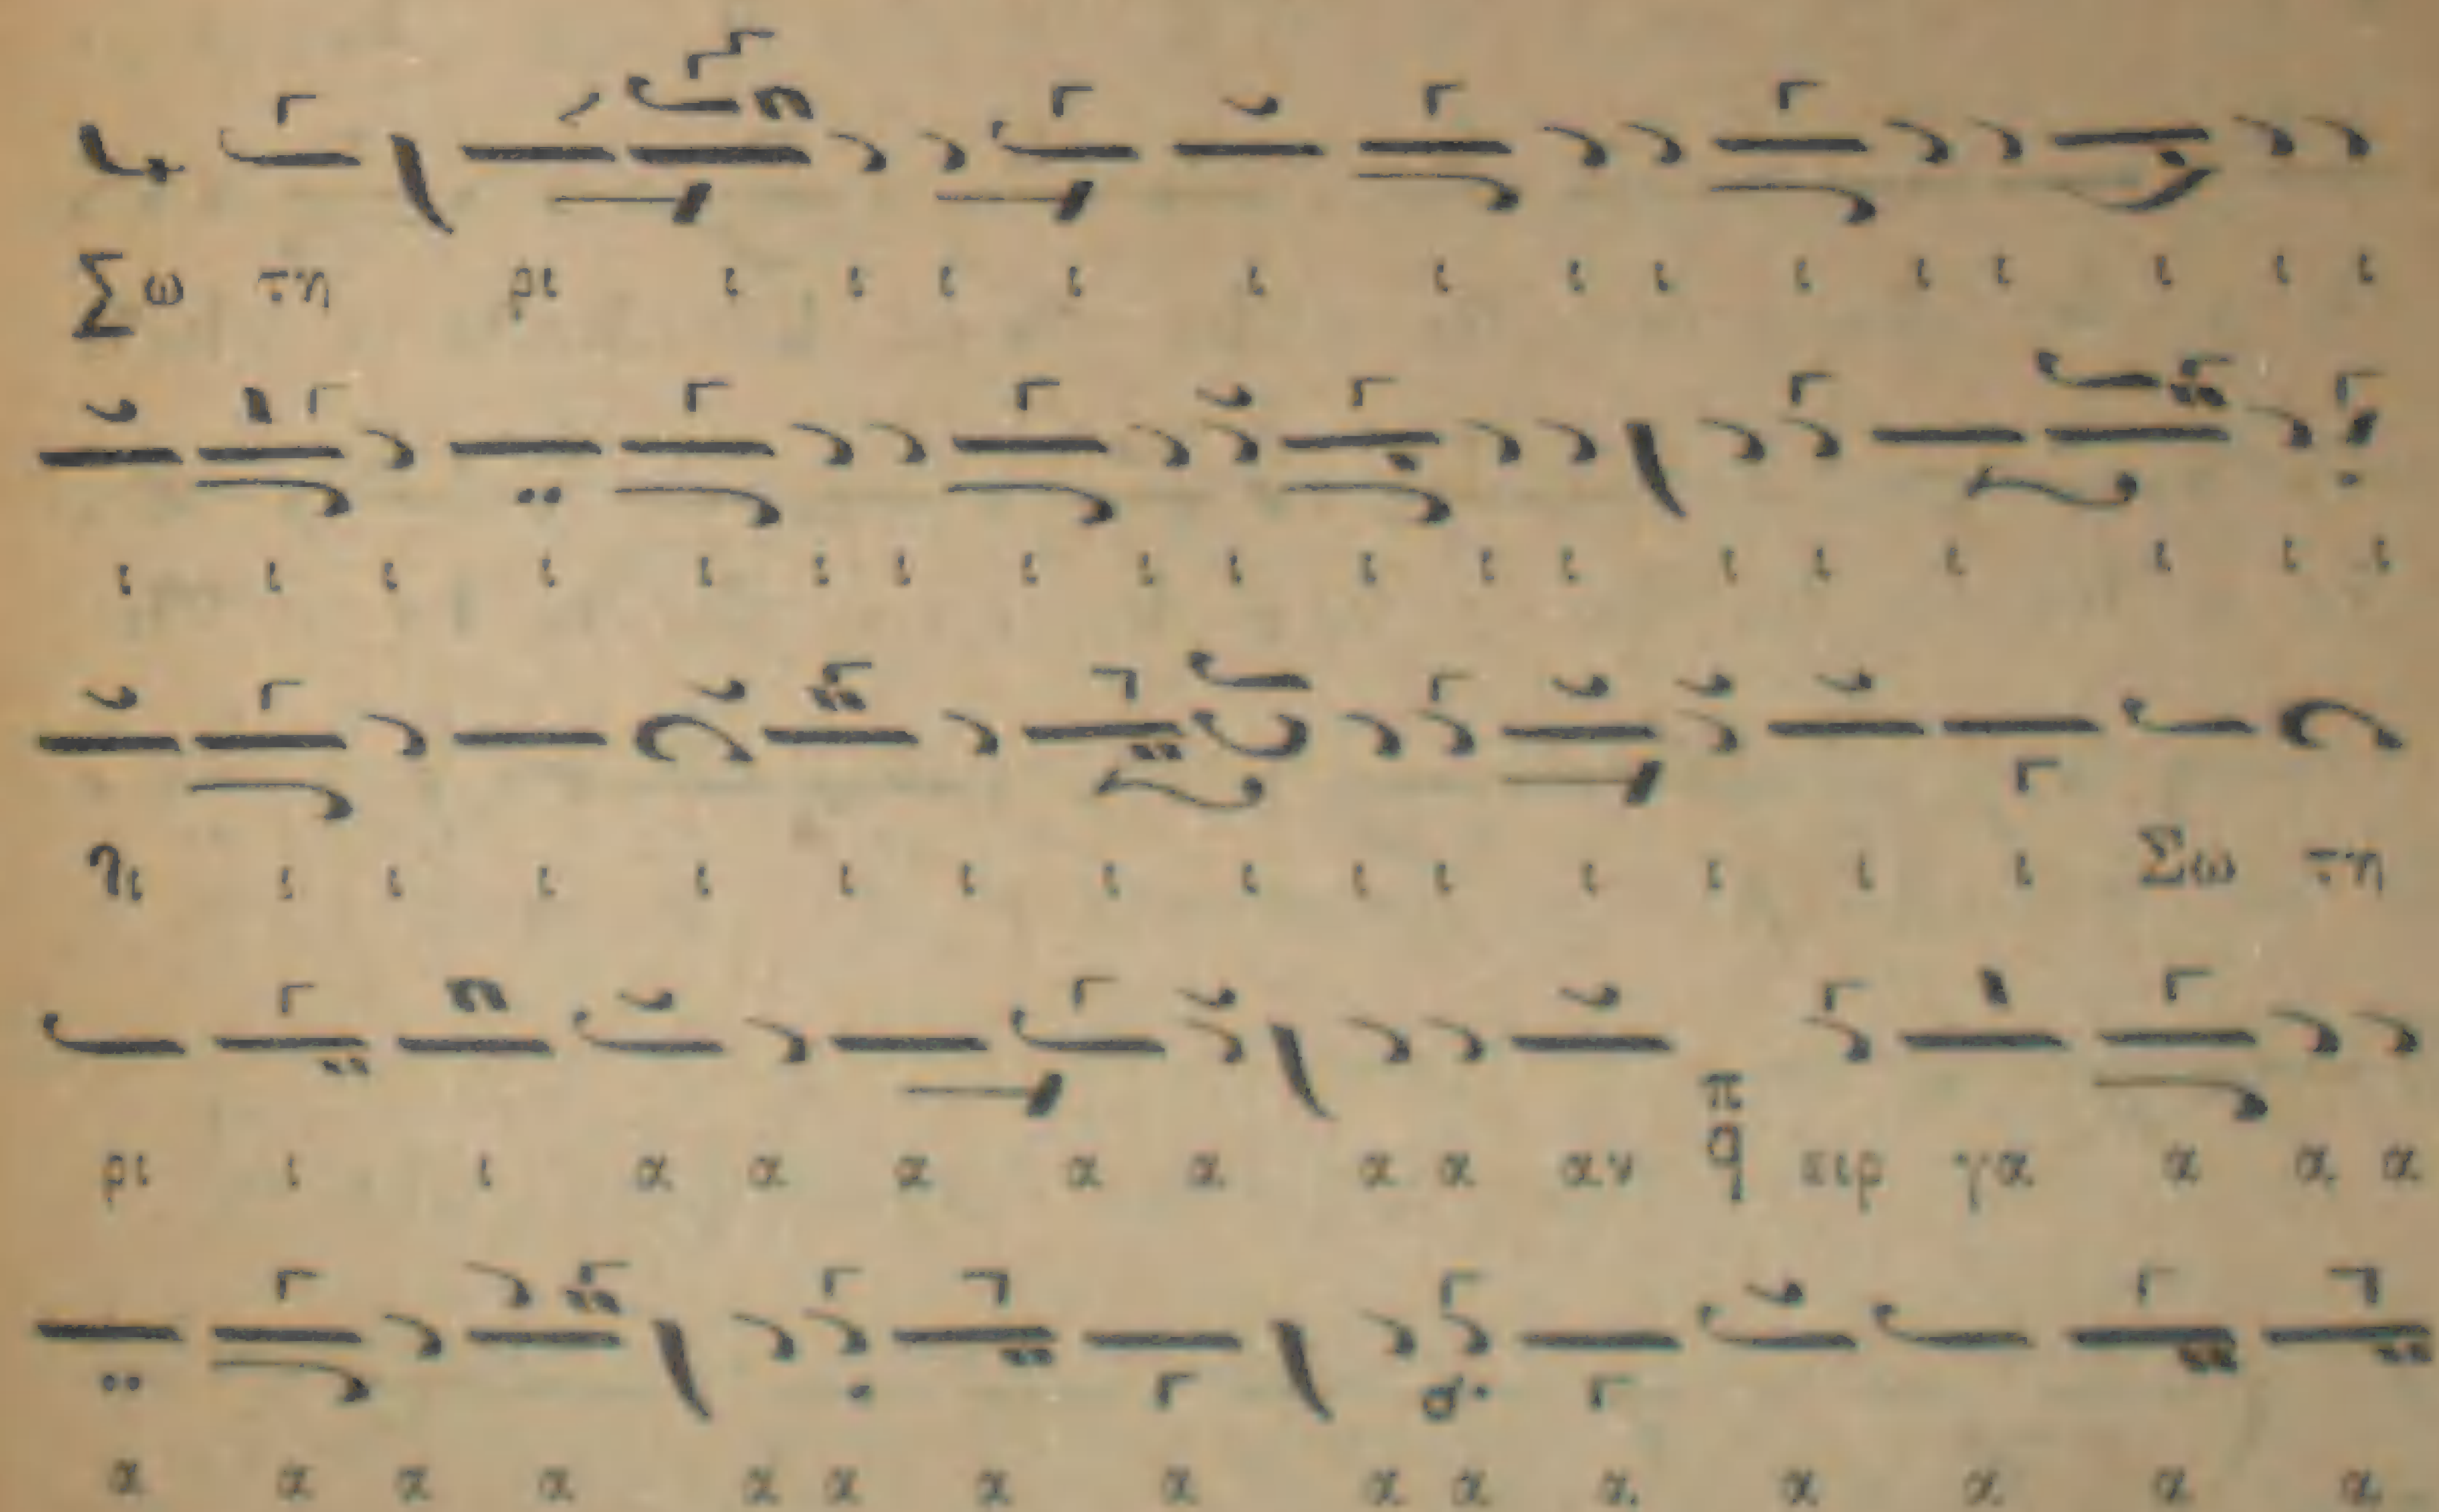 Σω τη ρι ι ι ι ι ι ι ι ι ι ι ι ι ι ι
ι ι ι ι ι ι ι ι ι ι ι ι ι ι ι ι ι ι ι
ι ι ι ι ι ι ι ι ι ι ι ι ι ι Σω τη
ρι ι ι α α α α α α α αν π q ειρ γα α α α
α α α α α α α α α α α α α α α